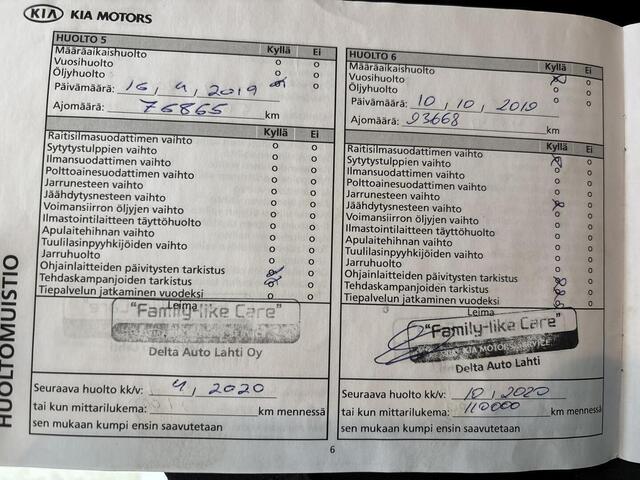 KIA KIA MOTORS
HUOLTOMUISTIO
HUOLTO 5 Kyllä Ei
Määräaikaishuolto
Vuosihuolto
Öljyhuolto
Päivämäärä: 16, 4, 2019
Ajomäärä: 76865 km
Kyllä Ei
Raitisilmasuodattimen vaihto
Sytytystulppien vaihto
Ilmansuodattimen vaihto
Polttoainesuodattimen vaihto
Jarrunesteen vaihto
Jäähdytysnesteen vaihto
Voimansiirron öljyjen vaihto
Ilmastointilaitteen täyttöhuolto
Apulaitehihnan vaihto
Tuulilasinpyyhkijöiden vaihto
Jarruhuolto
Ohjainlaitteiden päivitysten tarkistus
Tehdaskampanjoiden tarkistus
Tiepalvelun jatkaminen vuodeksi
Leima
"Family-like Care"
Delta Auto Lahti Oy
Seuraava huolto kk/v: 4, 2020
tai kun mittarilukema: km mennessä
sen mukaan kumpi ensin saavutetaan
HUOLTO 6 Kyllä Ei
Määräaikaishuolto
Vuosihuolto
Öljyhuolto
Päivämäärä: 10, 10, 2019
Ajomäärä: 93668 km
Kyllä Ei
Raitisilmasuodattimen vaihto
Sytytystulppien vaihto
Ilmansuodattimen vaihto
Polttoainesuodattimen vaihto
Jarrunesteen vaihto
Jäähdytysnesteen vaihto
Voimansiirron öljyjen vaihto
Ilmastointilaitteen täyttöhuolto
Apulaitehihnan vaihto
Tuulilasinpyyhkijöiden vaihto
Jarruhuolto
Ohjainlaitteiden päivitysten tarkistus
Tehdaskampanjoiden tarkistus
Tiepalvelun jatkaminen vuodeksi
Leima
"Family-like Care"
KIA MOTORS SERVICE
Delta Auto Lahti
Seuraava huolto kk/v: 10, 2020
tai kun mittarilukema: 110000 km mennessä
sen mukaan kumpi ensin saavutetaan
6